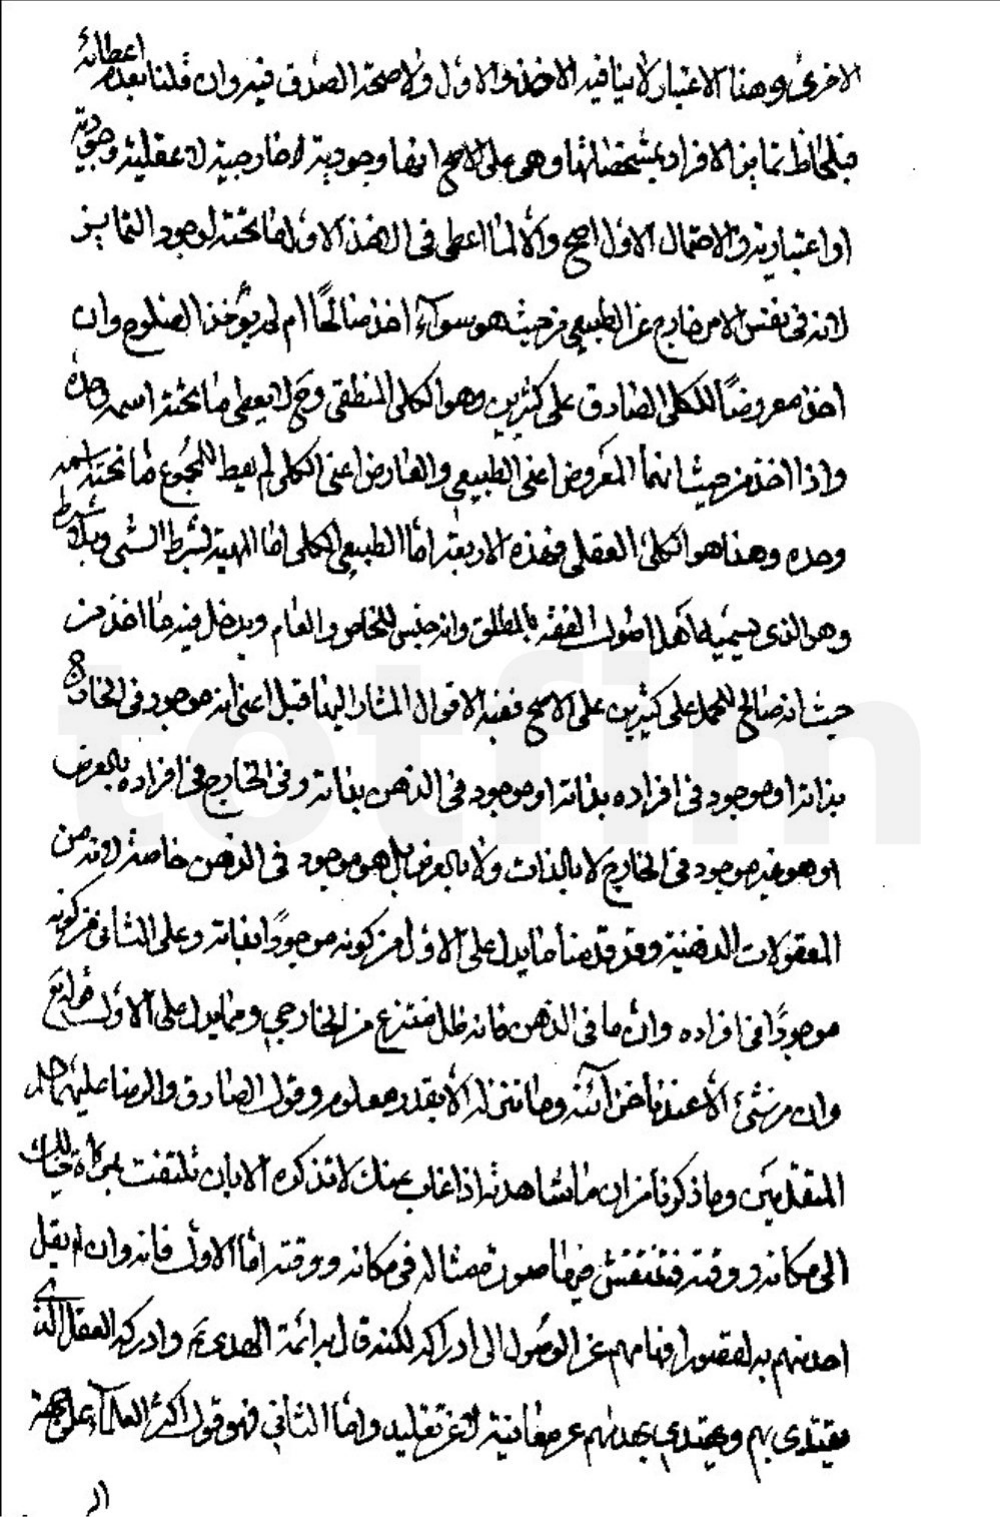 الاخرى وهذا الاعتبار لا ينافيه الاخذ الاول ولا صحة الصدق فيه وان قلنا بعدم اعطائه
فبلحاظ تمايز الافراد بمشخصاتها وهي على الاصح انها وجودية لا خارجية لا عقلية وجودية
او اعتبارية والاحتمال الاول اصح والا لما اعطى في الاخذ الاول ما تحته لوجود التمايز
لانه في نفس الامر خارج عن الطبيعي من حيث هو سواء اخذ صالحًا ام لم يؤخذ الصلوح وان
اخذ معروضًا للكلي الصادق على كثيرين وهو الكلي المنطقي وح لا يعطي ما تحته اسمه وحده
واذا اخذ من حيث انهما المعروض اعني الطبيعي والعارض اعني الكلي لم يعط المجموع ما تحته اسمه
وحده وهذا هو الكلي العقلي فهذه الاربعة اما الطبيعي الكلي اما الماهية بشرط الشئ وبلا شرط
وهى الذي يسميها اهل اصول الفقه بالمطلق وانه جنس للخاص والعام ويدخل فيه ما اخذ من
حيث انه صالح للحمل على كثيرين على الاصح ففيه الاقوال المشار اليها قبل اعني انه موجود في الخارج
بذاته او موجود في افراده بذاته او موجود في الذهن بذاته وفي الخارج في افراده بالعرض
او هو غير موجود في الخارج لا بالذات ولا بالعرض بل هو موجود في الذهن خاصة لانه من
المعقولات الذهنية وقد قدمنا ما يدل على الاول من كونه موجودًا بذاته وعلى الثاني من كونه
موجودًا في افراده وان ما في الذهن فانه ظل منتزع من الخارجي ومما يدل على الاول قوله تع
وان من شئ الا عندنا خزائنه وما ننزله الا بقدر معلوم وقول الصادق والرضا عليهما السلام
المتقدمين وما ذكرنا من ان ما تشاهده اذا غاب عنك لا تذكره الا بان تلتفت بمرآة خيالك
الى مكانه ووقته فتنتقش فيها صورة مثاله في مكانه ووقته اما الاول فانه وان لم يقل
احد منهم به لقصور افهامهم عن الوصول الى ادراكه لكنه قال به ائمة الهدى ع وادركه العقل الذي
يقتدي بهم ويهتدي بهديهم عن معاينة لا عن تقليد واما الثاني فهو قول اكثر العلماء على جهة